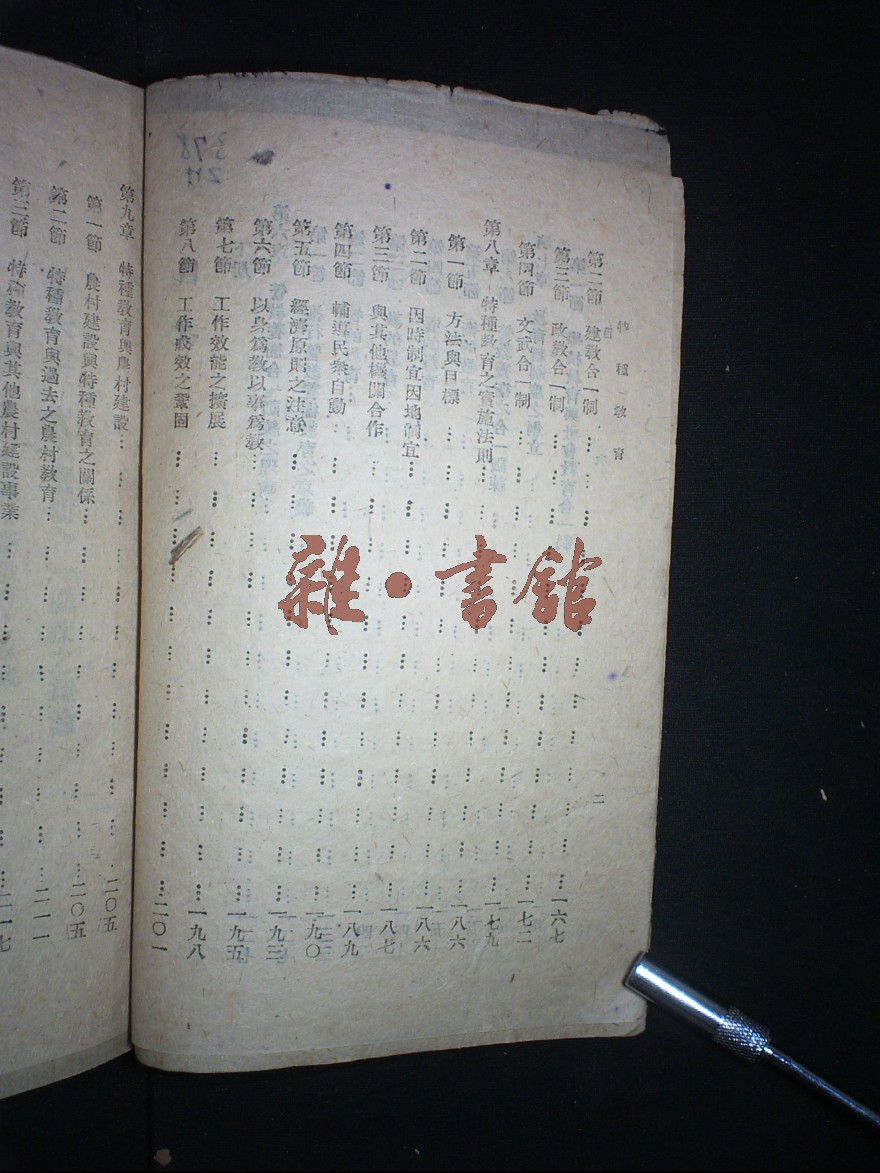 特種教育
二
第二節 建教合一制……一六七
第三節 政教合一制……一七二
第四節 文武合一制……一七九
第八章 特種教育之實施法則……一八六
第一節 方法與目標……一八六
第二節 因時制宜因地制宜……一八七
第三節 與其他機關合作……一八九
第四節 輔導民衆自動……一九〇
第五節 經濟原則之注意……一九三
第六節 以身爲教以事爲教……一九五
第七節 工作效能之擴展……一九八
第八節 工作成效之鞏固……二〇一
第九章 特種教育與農村建設……二〇五
第一節 農村建設與特種教育之關係……二〇五
第二節 特種教育與過去之農村教育……二一一
第三節 特種教育與其他農村建設事業……二一七
378
雜·書館